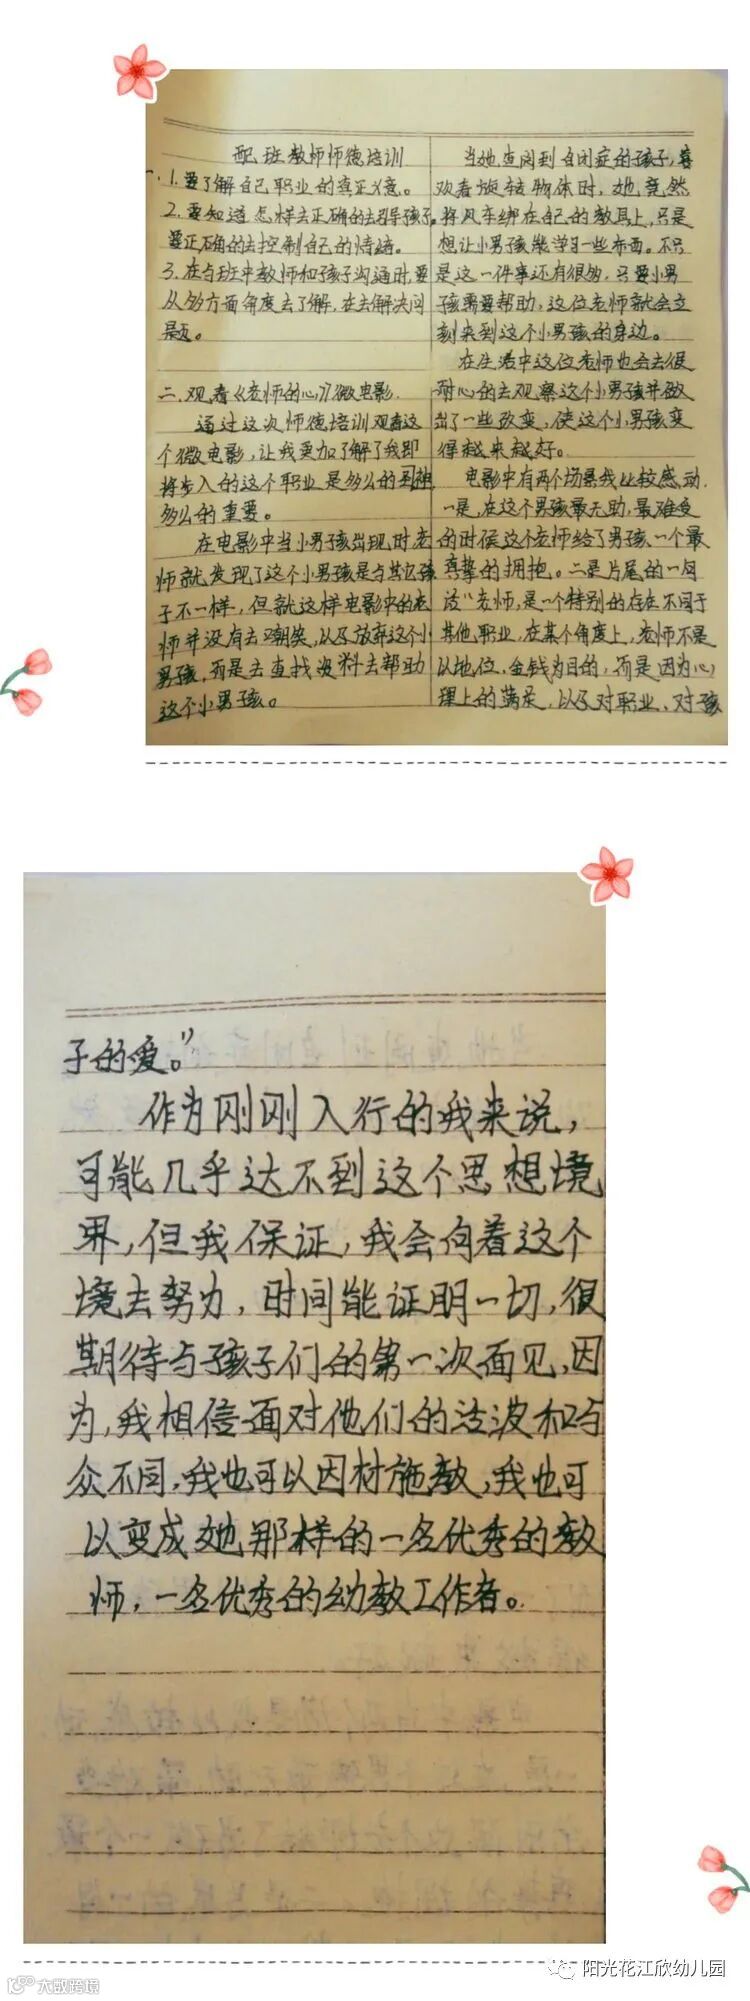 配班教师师德培训
一、1.要了解自己职业的真正义意。
2.要知道怎样去正确的去引导孩子,
要正确的去控制自己的情绪。
3.在与班中教师和孩子沟通时,要
从多方面角度去了解,在去解决问
题。
二、观看《老师的心》微电影.
通过这次师德培训观看这
个微电影,让我更加了解了我即
将步入的这个职业是多么的
多么的重要。
在电影中当小男孩出现时老
师就发现了这个小男孩是与其它孩
子不一样,但就这样电影中的老
师并没有去嘲笑,以及放弃这个小
男孩,而是去查找资料去帮助
这个小男孩。
当她查阅到自闭症的孩子,喜
欢看旋转物体时,她竟然
将风车绑在自己的教具上,只是
想让小男孩能学习一些东西。不只
是这一件事还有很多,只要小男
孩需要帮助,这位老师就会立
刻来到这个小男孩的身边。
在生活中这位老师也会去很
耐心的去观察这个小男孩并做
出了一些改变,使这个小男孩变
得越来越好。
电影中有两个场景我比较感动.
一是,在这个男孩最无助,最难受
的时候这个老师给了男孩一个最
真挚的拥抱。二是片尾的一句
话"老师,是一个特别的存在不同于
其他职业,在某个角度上,老师不是
以地位,金钱为目的,而是因为心
理上的满足,以及对职业、对孩
子的爱。"
作为刚刚入行的我来说,
可能几乎达不到这个思想境
界,但我保证,我会向着这个
境去努力,时间能证明一切,很
期待与孩子们的第一次面见,因
为,我相信面对他们的活波和与
众不同,我也可以因材施教,我也可
以变成她那样的一名优秀的教
师,一名优秀的幼教工作者。
大数跨境
阳光花江欣幼儿园